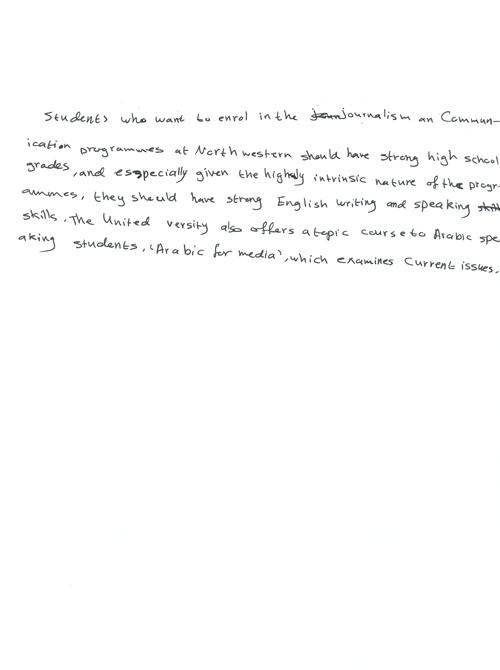 Students who want to enrol in the journalism an Commun-
ication programmes at North western should have strong high school
grades, and especially given the highly intrinsic nature of the progr-
ammes, they should have strong English writing and speaking
skills. The United versity also offers a topic course to Arabic spe
aking students, 'Arabic for media', which examines Current issues.